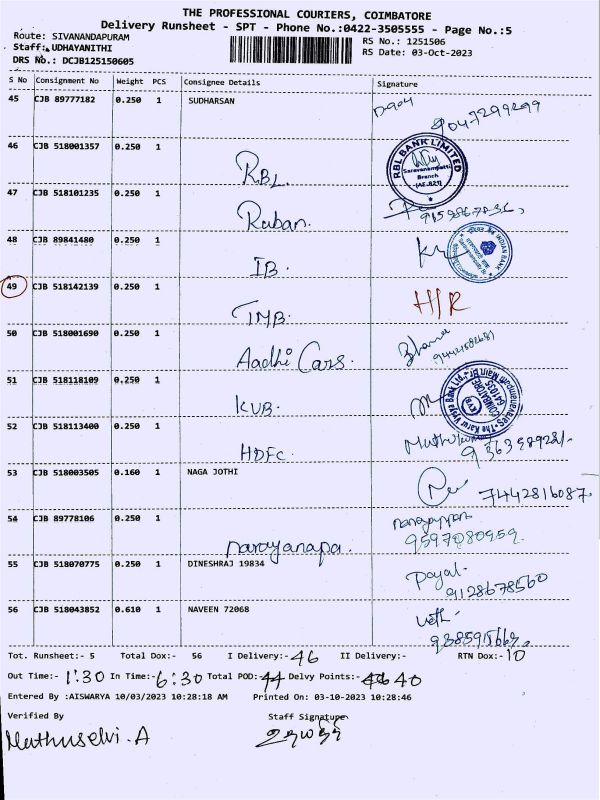 THE PROFESSIONAL COURIERS, COIMBATORE
Delivery Runsheet - SPT - Phone No.:0422-3505555 - Page No.:5
Route: SIVANANDAPURAM
RS No.: 1251506
Staff: UDHAYANITHI
RS Date: 03-Oct-2023
DRS No.: DCJB125150605
S No Consignment No Weight PCS Consignee Details Signature
45 CJB 89777182 0.250 1 SUDHARSAN
46 CJB 518001357 0.250 1 RBL
RBL BANK LIMITED
Saravanampatti
Branch
(AE.821)
47 CJB 518101235 0.250 1 Ruban.
48 CJB 89841480 0.250 1 IB.
INDIAN BANK
49 CJB 518142139 0.250 1 TMB. H/R
50 CJB 518001690 0.250 1 Aadhi Cars.
51 CJB 518118109 0.250 1 KVB.
The Karur Vysya Bank Ltd.,
COIMBATORE
641035
KVB
52 CJB 518113400 0.250 1 HDFC.
53 CJB 518003505 0.160 1 NAGA JOTHI 7442816087
54 CJB 89778106 0.250 1 narayanapa. 9597080959
55 CJB 518070775 0.250 1 DINESHRAJ 19834 Payal. 9128678560
56 CJB 518043852 0.610 1 NAVEEN 72068
Tot. Runsheet:- 5 Total Dox:- 56 I Delivery:- 46 II Delivery:- RTN Dox:- 10
Out Time:- 1:30 In Time:- 6:30 Total POD: 44 Delvy Points:- 40
Entered By :AISWARYA 10/03/2023 10:28:18 AM Printed On: 03-10-2023 10:28:46
Verified By Staff Signature
Muthuselvi. A